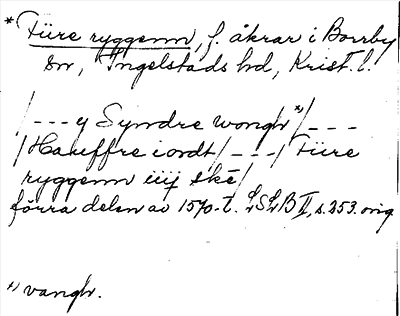 * Füre ryggenn, f. åkrar i Borrby
sn, Ingelstads hd, Krist. l.
/--- y Syndre wongh *)/---
/Haueffre iordt/---/ Füre
ryggenn iiij skē/
förra delen av 1570-t. LSLB II, s. 253. orig
*) vangh.